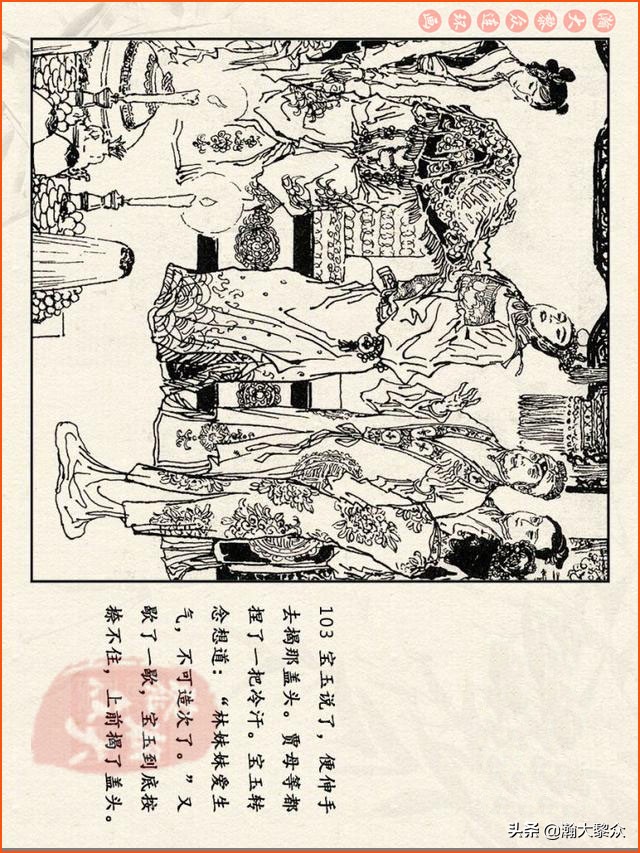 瀚大黎众连环画
103 宝玉说了，便伸手
去揭那盖头。贾母等都
捏了一把冷汗。宝玉转
念想道：“林妹妹爱生
气，不可造次了。”又
歇了一歇，宝玉到底按
捺不住，上前揭了盖头。
头条 @瀚大黎众